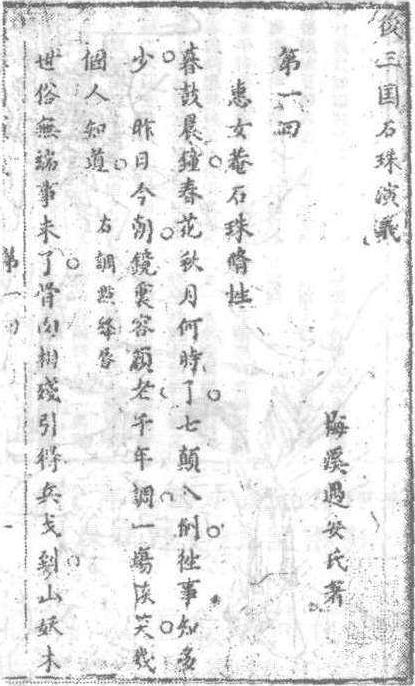 後三国石珠演義
梅溪遇安氏著
第一回
惠女菴石珠脩性
暮鼓晨鐘春花秋月何時了七顛八倒徃事知多
少　昨日今朝鏡裏容顏老千年調一塲談笑幾
個人知道　右調點絳唇
世俗無端事来了骨肉相殘引得兵戈到山妖木
第一回